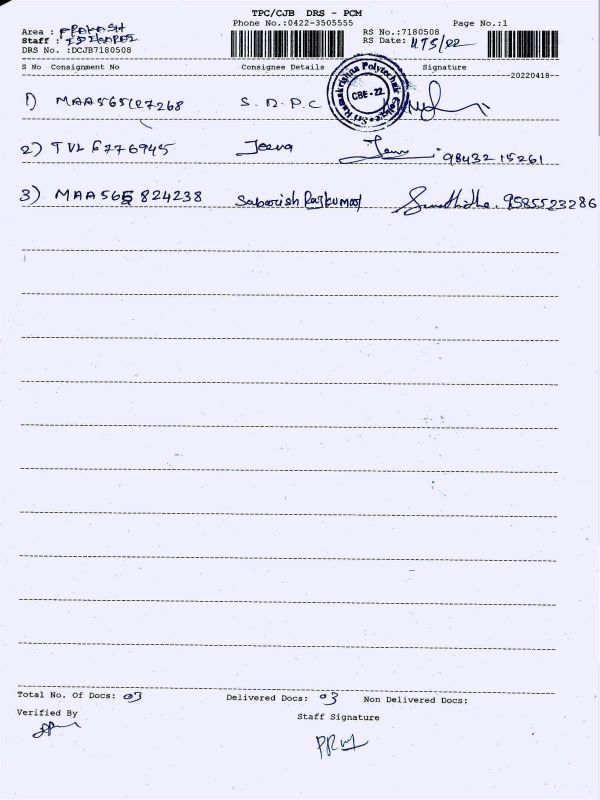 TPC/CJB DRS - PCM
Phone No.:0422-3505555 Page No.:1
Area : PRAKASH RS No.:7180508
Staff : RS Date:
DRS No. :DCJB7180508
S No Consignment No Consignee Details Signature
20220418
Sri Ramakrishna Polytechnic College
CBE-22
1) S.R.P.C
2) TVL 6776945 Jeeva 98432 15261
3) MAA565 824238 Sabarish Rajkumar 9585523286
Total No. Of Docs: 03 Delivered Docs: 03 Non Delivered Docs:
Verified By
Staff Signature